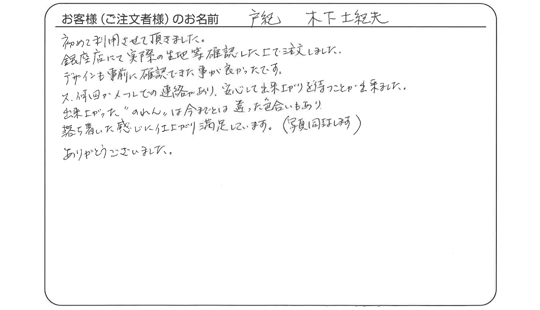 お客様（ご注文者様）のお名前 戸紀 木下土紀夫
初めて利用させて頂きました。
銀座店にて実際の生地等確認した上で注文しました。
デザインも事前に確認できた事が良かったです。
又、何回かメールでの連絡があり、安心して出来上がりを待つことが出来ました。
出来上がった“のれん”は今までとは違った色合いもあり
落ち着いた感じに仕上がり満足しています。（写真同封します）
ありがとうございました。